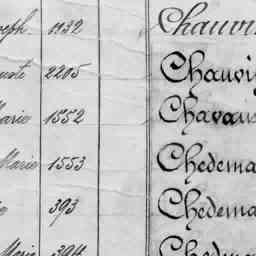 seph. 1932 Chauvi
uste 2205 Chauvi
Marie 1552 Chavaus
Marie 1553 Chedema
393 Chedema
Marie 394 Chedema